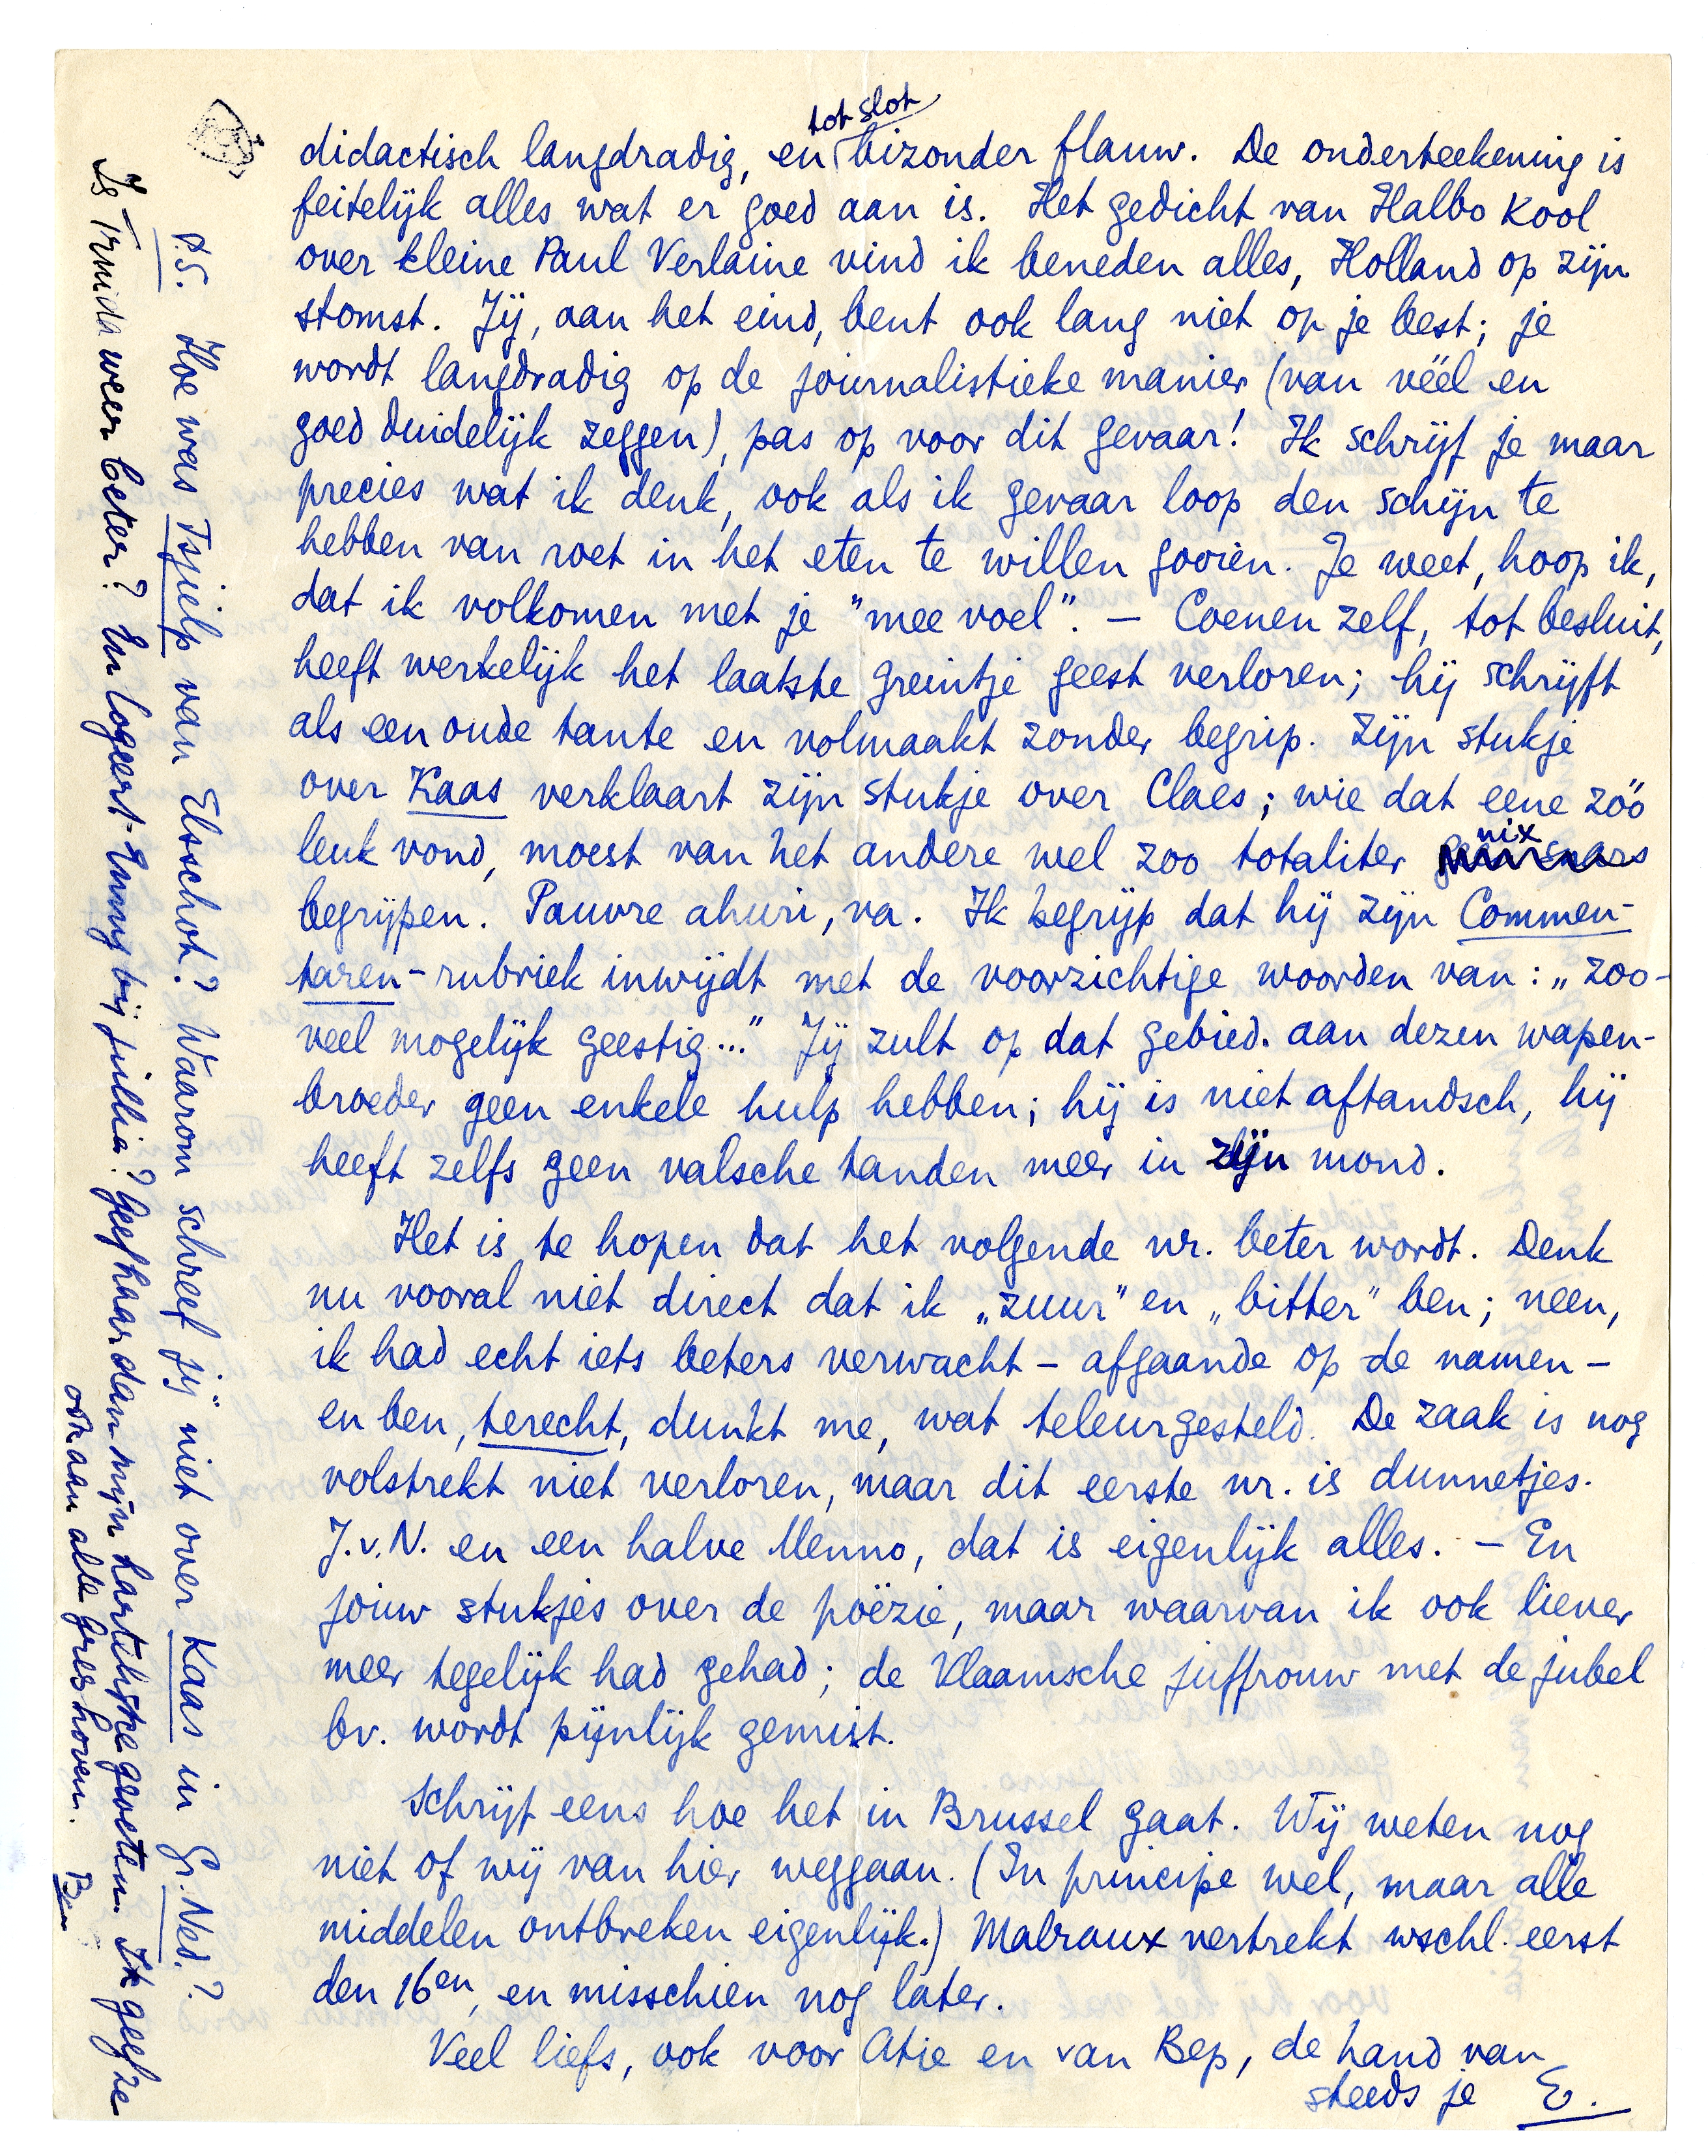 didactisch langdradig, en tot slot bizonder flauw. De onderteekening is
feitelijk alles wat er goed aan is. Het gedicht van Halbo Kool
over kleine Paul Verlaine vind ik beneden alles, Holland op zijn
stomst. Jij, aan het eind, bent ook lang niet op je best; je
wordt langdradig op de journalistieke manier (van véél en
goed duidelijk zeggen), pas op voor dit gevaar! Ik schrijf je maar
precies wat ik denk, ook als ik gevaar loop den schijn te
hebben van roet in het eten te willen gooien. Je weet, hoop ik,
dat ik volkomen met je "mee voel". — Coenen zelf, tot besluit,
heeft werkelijk het laatste greintje geest verloren; hij schrijft
als een oude tante en volmaakt zonder begrip. Zijn stukje
over Kaas verklaart zijn stukje over Claes; wie dat eene zóó
leuk vond, moest van het andere wel zoo totaliter nix
begrijpen. Pauvre ahuri, va. Ik begrijp dat hij zijn Commen-
taren-rubriek inwijdt met de voorzichtige woorden van: „zoo-
veel mogelijk geestig..." Jij zult op dat gebied aan dezen wapen-
broeder geen enkele hulp hebben; hij is niet aftandsch, hij
heeft zelfs geen valsche tanden meer in zijn mond.
Het is te hopen dat het volgende nr. beter wordt. Denk
nu vooral niet direct dat ik „zuur" en „bitter" ben; neen,
ik had echt iets beters verwacht — afgaande op de namen —
en ben, terecht, dunkt me, wat teleurgesteld. De zaak is nog
volstrekt niet verloren, maar dit eerste nr. is dunnetjes.
J.v.N. en een halve Menno, dat is eigenlijk alles. — En
jouw stukjes over de poëzie, maar waarvan ik ook liever
meer tegelijk had gehad; de Vlaamsche juffrouw met de jubel
bv. wordt pijnlijk gemist.
Schrijf eens hoe het in Brussel gaat. Wij weten nog
niet of wij van hier weggaan. (In principe wel, maar alle
middelen ontbreken eigenlijk.) Malraux vertrekt wschl. eerst
den 16en, en misschien nog later.
Veel liefs, ook voor Atie en van Bep, de hand van
steeds je E.
P.S. Hoe was Tsjielp van Elsschot? Waarom schreef jij niet over Kaas in Gr. Ned.?
Is Trnida weer beter? En logeert Enny bij jullie? Geef haar dan mijn hartelijkste groeten. Ik geef ze
ook aan alle Greshoven. Bep